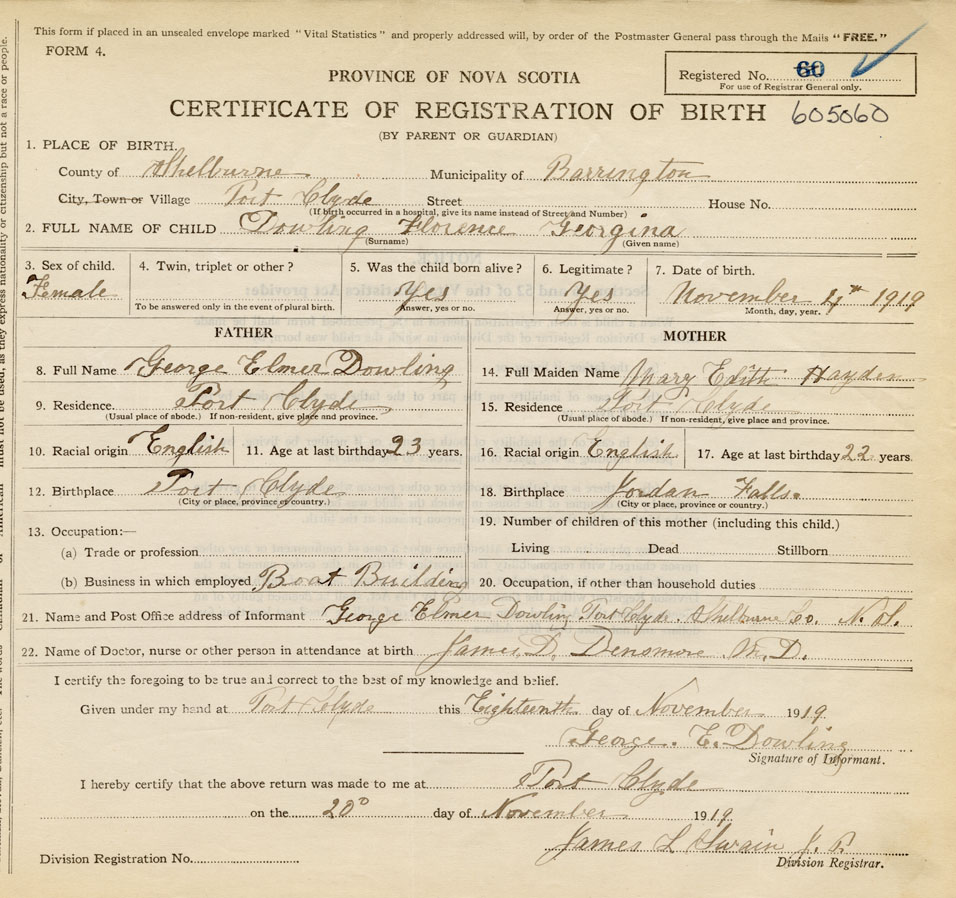 This form if placed in an unsealed envelope marked "Vital Statistics" and properly addressed will, by order of the Postmaster General pass through the Mails "FREE."
FORM 4.
Registered No. 60
For use of Registrar General only.
PROVINCE OF NOVA SCOTIA
CERTIFICATE OF REGISTRATION OF BIRTH 605060
(BY PARENT OR GUARDIAN)
1. PLACE OF BIRTH.
County of Shelburne Municipality of Barrington
City, Town or Village Port Clyde Street House No.
(If birth occurred in a hospital, give its name instead of Street and Number)
2. FULL NAME OF CHILD Dowling Florence Georgina
(Surname) (Given name)
3. Sex of child. 4. Twin, triplet or other? 5. Was the child born alive? 6. Legitimate? 7. Date of birth.
Female Yes Yes November 4th 1919
To be answered only in the event of plural birth. Answer, yes or no. Answer, yes or no. Month, day, year.
FATHER
8. Full Name George Elmer Dowling
9. Residence. Port Clyde
(Usual place of abode.) If non-resident, give place and province.
10. Racial origin English 11. Age at last birthday 23 years.
12. Birthplace Port Clyde
(City or place, province or country.)
13. Occupation:—
(a) Trade or profession
(b) Business in which employed Boat Building
MOTHER
14. Full Maiden Name Mary Edith Hayden
15. Residence Port Clyde
(Usual place of abode.) If non-resident, give place and province.
16. Racial origin English 17. Age at last birthday 22 years.
18. Birthplace Jordan Falls.
(City or place, province or country.)
19. Number of children of this mother (including this child.)
Living Dead Stillborn
20. Occupation, if other than household duties
21. Name and Post Office address of Informant George Elmer Dowling Port Clyde. Shelburne Co. N. S.
22. Name of Doctor, nurse or other person in attendance at birth James D. Densmore M. D.
I certify the foregoing to be true and correct to the best of my knowledge and belief.
Given under my hand at Port Clyde this Eighteenth day of November 1919.
George. E. Dowling
Signature of Informant.
I hereby certify that the above return was made to me at Port Clyde
on the 20° day of November 1919.
James L Swain J. P.
Division Registration No. Division Registrar.